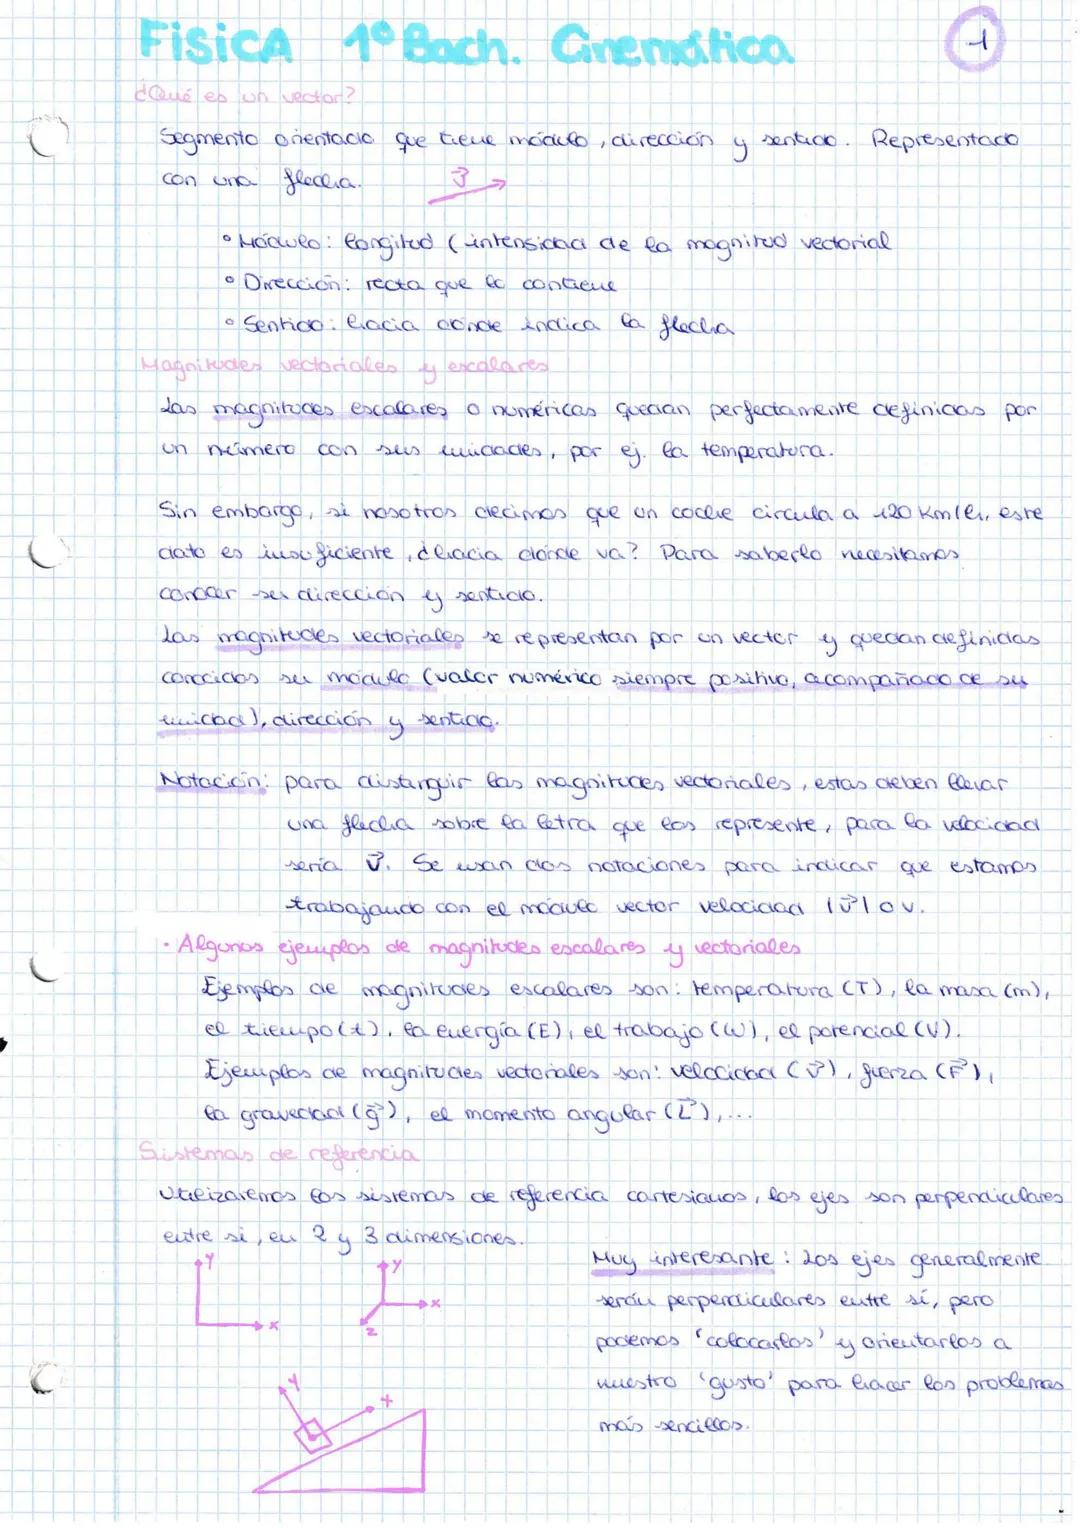 FÍSICA 1º Bach. Cinemática
1
¿Qué es un vector?
Segmento orientado que tiene módulo, dirección y sentido. Representado
con una flecha.
• Módulo: longitud (intensidad de la magnitud vectorial
• Dirección: recta que lo contiene
• Sentido: hacia dónde indica la flecha
Magnitudes vectoriales y escalares
Las magnitudes escalares o numéricas quedan perfectamente definidas por
un número con sus unidades, por ej. la temperatura.
Sin embargo, si nosotros decimos que un coche circula a 120 Km/h, este
dato es insuficiente, ¿hacia dónde va? Para saberlo necesitamos
conocer su dirección y sentido.
Las magnitudes vectoriales se representan por un vector y quedan definidas
conocidos su módulo (valor numérico siempre positivo, acompañado de su
unidad), dirección y sentido.
Notación: para distinguir las magnitudes vectoriales, estas deben llevar
una flecha sobre la letra que las represente, para la velocidad
sería v⃗. Se usan dos notaciones para indicar que estamos
trabajando con el módulo vector velocidad |v⃗| o v.
· Algunos ejemplos de magnitudes escalares y vectoriales
Ejemplos de magnitudes escalares son: temperatura (T), la masa (m),
el tiempo (t), la energía (E), el trabajo (W), el potencial (V).
Ejemplos de magnitudes vectoriales son: velocidad (v⃗), fuerza (F⃗),
la gravedad (g⃗), el momento angular (L⃗),...
Sistemas de referencia
Utilizaremos los sistemas de referencia cartesianos, los ejes son perpendiculares
entre si, en 2 y 3 dimensiones.
Y
X
Y
X
Z
Muy interesante: Los ejes generalmente
serán perpendiculares entre sí, pero
podemos 'colocarlos' y orientarlos a
nuestro 'gusto' para hacer los problemas
más sencillos.
Y
X